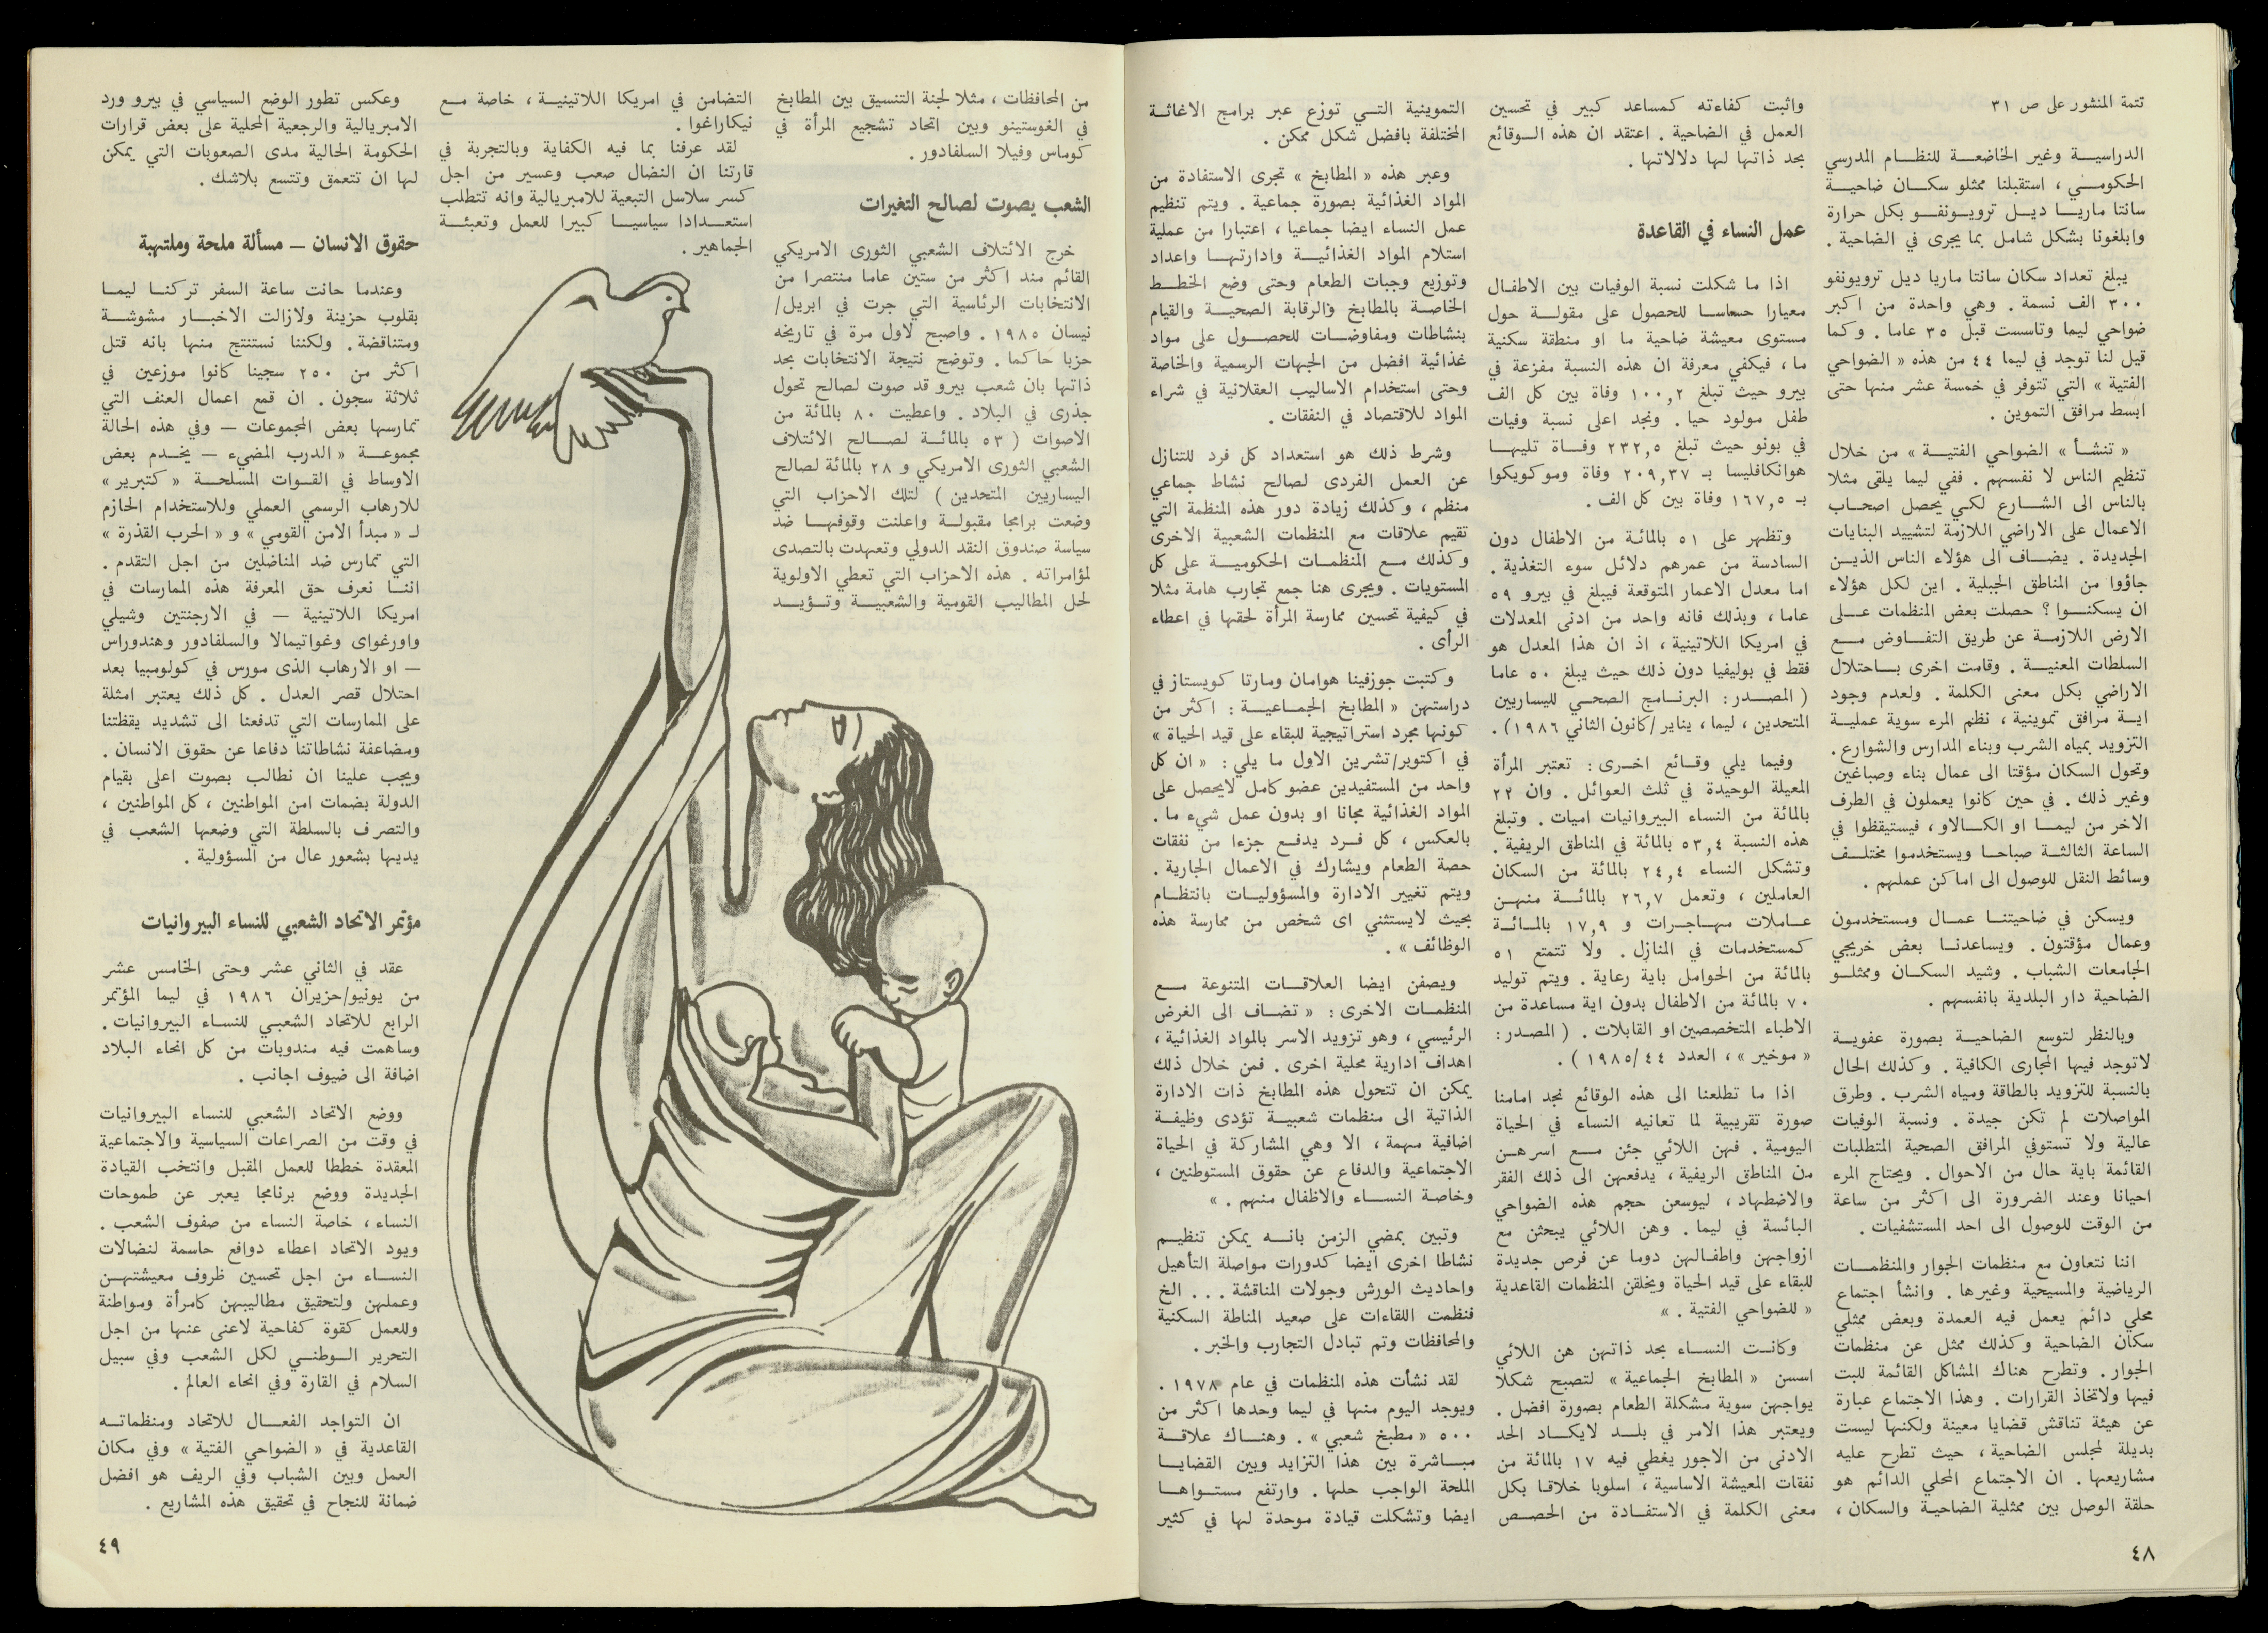 تتمة المنشور على ص ٣١
الدراسيــة وغير الخاضعــة للنظــام المدرسي
الحكومــي ، استقبلنا ممثلو سكــان ضاحيــة
سانتا ماريــا ديــل ترويــونفــو بكل حرارة
وابلغونا بشكل شامل بما يجرى في الضاحية .
يبلغ تعداد سكان سانتا ماريا ديل ترويونفو
٣٠٠ الف نسمة . وهي واحدة من اكبر
ضواحي ليما وتاسست قبل ٣٥ عاما . وكما
قيل لنا توجد في ليما ٤٤ من هذه « الضواحي
الفتية » التي تتوفر في خمسة عشر منها حتى
ابسط مرافق التموين .
« تنشــأ » الضواحي الفتيــة » من خلال
تنظيم الناس لا نفسهم . ففي ليما يلقى مثلا
بالناس الى الشــارع لكــي يحصل اصحــاب
الاعمال على الاراضي اللازمة لتشييد البنايات
الجديدة . يضــاف الى هؤلاء الناس الذيــن
جاؤوا من المناطق الجبلية . اين لكل هؤلاء
ان يسكنــوا ؟ حصلت بعض المنظمات عــلى
الارض اللازمــة عن طريق التفــاوض مــع
السلطات المعنيــة . وقامت اخرى بــاحتلال
الاراضي بكل معنى الكلمة . ولعدم وجود
ايــة مرافق تموينية ، نظم المرء سوية عمليــة
التزويد بمياه الشرب وبناء المدارس والشوارع .
وتحول السكان مؤقتا الى عمال بناء وصباغين
وغير ذلك . في حين كانوا يعملون في الطرف
الاخر من ليمــا او الكــالاو ، فيستيقظوا في
الساعة الثالثــة صباحــا ويستخدموا مختلــف
وسائط النقل للوصول الى اماكن عملهم .
ويسكن في ضاحيتنــا عمــال ومستخدمون
وعمال مؤقتون . ويساعدنــا بعض خريجي
الجامعات الشباب . وشيد السكــان وممثلــو
الضاحية دار البلدية بانفسهم .
وبالنظر لتوسع الضاحيــة بصورة عفويــة
لاتوجد فيها المجارى الكافية . وكذلك الحال
بالنسبة للتزويد بالطاقة ومياه الشرب . وطرق
المواصلات لم تكن جيدة . ونسبة الوفيات
عالية ولا تستوفي المرافق الصحية المتطلبات
القائمة باية حال من الاحوال . ويحتاج المرء
احيانا وعند الضرورة الى اكثر من ساعة
من الوقت للوصول الى احد المستشفيات .
اننا نتعاون مع منظمات الجوار والمنظمــات
الرياضية والمسيحية وغيرها . وانشأ اجتماع
محلي دائم يعمل فيه العمدة وبعض ممثلي
سكان الضاحية وكذلك ممثل عن منظمات
الجوار . وتطرح هناك المشاكل القائمة للبت
فيها ولاتخاذ القرارات . وهذا الاجتماع عبارة
عن هيئة تناقش قضايا معينة ولكنها ليست
بديلة لمجلس الضاحية ، حيث تطرح عليه
مشاريعها . ان الاجتماع المحلي الدائم هو
حلقة الوصل بين ممثلية الضاحية والسكان ،
واثبت كفاءته كمساعد كبير في تحسين
العمل في الضاحية . اعتقد ان هذه الــوقائع
بحد ذاتها لها دلالاتها .
عمل النساء في القاعدة
اذا ما شكلت نسبة الوفيات بين الاطفــال
معيارا حساسا للحصول على مقولــة حول
مستوى معيشة ضاحية ما او منطقة سكنية
ما ، فيكفي معرفة ان هذه النسبة مفزعة في
بيرو حيث تبلغ ١٠٠,٢ وفاة بين كل الف
طفل مولود حيا . ونجد اعلى نسبة وفيات
في بونو حيث تبلغ ٢٣٢,٥ وفــاة تليهــا
هوانكافليسا بـ ٢٠٩,٣٧ وفاة وموكويكوا
بـ ١٦٧,٥ وفاة بين كل الف .
وتظهر على ٥١ بالمائة من الاطفال دون
السادسة من عمرهم دلائل سوء التغذية .
اما معدل الاعمار المتوقعة فيبلغ في بيرو ٥٩
عاما ، وبذلك فانه واحد من ادنى المعدلات
في امريكا اللاتينية ، اذ ان هذا المعدل هو
فقط في بوليفيا دون ذلك حيث يبلغ ٥٠ عاما
( المصــدر : البرنــامج الصحــي لليساريين
المتحدين ، ليما ، يناير / كانون الثاني ١٩٨٦ ) .
وفيما يلي وقــائع اخــرى : تعتبر المرأة
المعيلة الوحيدة في ثلث العوائل . وان ٢٢
بالمائة من النساء البيروانيات اميات . وتبلغ
هذه النسبة ٥٣,٤ بالمائة في المناطق الريفية .
وتشكل النساء ٢٤,٤ بالمائة من السكان
العاملين ، وتعمل ٢٦,٧ بالمائــة منهــن
عــاملات مهــاجــرات و ١٧,٩ بالمــائــة
كمستخدمات في المنازل . ولا تتمتع ٥١
بالمائة من الحوامل باية رعاية . ويتم توليد
٧٠ بالمائة من الاطفال بدون اية مساعدة من
الاطباء المتخصصين او القابلات . ( المصدر :
« موخير » ، العدد ٤٤ / ١٩٨٥ ) .
اذا ما تطلعنا الى هذه الوقائع نجد امامنا
صورة تقريبية لما تعانيه النساء في الحياة
اليومية . فهن اللائي جئن مــع اسرهــن
من المناطق الريفية ، يدفعهن الى ذلك الفقر
والاضطهاد ، ليوسعن حجم هذه الضواحي
البائسة في ليما . وهن اللائي يبحثن مع
ازواجهن واطفــالهن دوما عن فرص جديدة
للبقاء على قيد الحياة ويخلقن المنظمات القاعدية
« للضواحي الفتية . »
وكانــت النســاء بحد ذاتهن هن اللائي
اسسن « المطابخ الجماعية » لتصبح شكلا
يواجهن سوية مشكلة الطعام بصورة افضل .
ويعتبر هذا الامر في بلــد لايكــاد الحد
الادنى من الاجور يغطي فيه ١٧ بالمائة من
نفقات المعيشة الاساسية ، اسلوبا خلاقا بكل
معنى الكلمة في الاستفــادة من الحصــص
التموينية التــي توزع عبر برامج الاغاثــة
المختلفة بافضل شكل ممكن .
وعبر هذه « المطابخ » تجرى الاستفادة من
المواد الغذائية بصورة جماعية . ويتم تنظيم
عمل النساء ايضا جماعيا ، اعتبارا من عملية
استلام المواد الغذائيــة وادارتهــا واعداد
وتوزيع وجبات الطعام وحتى وضع الخطــط
الخاصــة بالمطابخ والرقابة الصحيــة والقيام
بنشاطات ومفاوضــات للحصــول على مواد
غذائية افضل من الجهات الرسمية والخاصة
وحتى استخدام الاساليب العقلانية في شراء
المواد للاقتصاد في النفقات .
وشرط ذلك هو استعداد كل فرد للتنازل
عن العمل الفردى لصالح نشاط جماعي
منظم ، وكذلك زيادة دور هذه المنظمة التي
تقيم علاقات مع المنظمات الشعبية الاخرى
وكذلك مــع المنظمــات الحكوميــة على كل
المستويات . ويجرى هنا جمع تجارب هامة مثلا
في كيفية تحسين ممارسة المرأة لحقها في اعطاء
الرأى .
وكتبت جوزفينا هوامان ومارتا كويستاز في
دراستهن « المطابخ الجمــاعيــة : اكثر من
كونها مجرد استراتيجية للبقاء على قيد الحياة »
في اكتوبر/تشرين الاول ما يلي : « ان كل
واحد من المستفيدين عضو كامل لايحصل على
المواد الغذائية مجانا او بدون عمل شيء ما .
بالعكس ، كل فــرد يدفــع جزءا من نفقات
حصة الطعام ويشارك في الاعمال الجارية .
ويتم تغيير الادارة والمسؤوليــات بانتظــام
بحيث لايستثني اى شخص من ممارسة هذه
الوظائف » .
ويصفن ايضا العلاقــات المتنوعة مــع
المنظمــات الاخرى : « تضــاف الى الغرض
الرئيسي ، وهو تزويد الاسر بالمواد الغذائية ،
اهداف ادارية محلية اخرى . فمن خلال ذلك
يمكن ان تتحول هذه المطابخ ذات الادارة
الذاتية الى منظمات شعبيــة تؤدى وظيفــة
اضافية مهمة ، الا وهي المشاركة في الحياة
الاجتماعية والدفاع عن حقوق المستوطنين ،
وخاصة النســاء والاطفال منهم . »
وتبين بمضي الزمن بانــه يمكن تنظيــم
نشاطا اخرى ايضا كدورات مواصلة التأهيل
واحاديث الورش وجولات المناقشة . . . الخ
فنظمت اللقاءات على صعيد المناطة السكنية
والمحافظات وتم تبادل التجارب والخبر .
لقد نشأت هذه المنظمات في عام ١٩٧٨ .
ويوجد اليوم منها في ليما وحدها اكثر من
٥٠٠ « مطبخ شعبي » . وهنــاك علاقــة
مبــاشرة بين هذا التزايد وبين القضايــا
الملحة الواجب حلها . وارتفع مستــواهــا
ايضا وتشكلت قيادة موحدة لها في كثير
٤٨
من المحافظات ، مثلا لجنة التنسيق بين المطابخ
في الغوستينو وبين اتحاد تشجيع المرأة في
كوماس وفيلا السلفادور .
الشعب يصوت لصالح التغيرات
خرج الائتلاف الشعبي الثورى الامريكي
القائم منذ اكثر من ستين عاما منتصرا من
الانتخابات الرئاسية التي جرت في ابريل/
نيسان ١٩٨٥ . واصبح لاول مرة في تاريخه
حزبا حاكما . وتوضح نتيجة الانتخابات بجد
ذاتها بان شعب بيرو قد صوت لصالح تحول
جذرى في البلاد . واعطيت ٨٠ بالمائة من
الاصوات ( ٥٣ بالمائــة لصــالح الائتلاف
الشعبي الثورى الامريكي و ٢٨ بالمائة لصالح
اليساريين المتحدين ) لتلك الاحزاب التي
وضعت برامجا مقبولــة واعلنت وقوفهــا ضد
سياسة صندوق النقد الدولي وتعهدت بالتصدى
لمؤامراته . هذه الاحزاب التي تعطي الاولوية
لحل المطاليب القومية والشعبيــة وتــؤيــد
التضامن في امريكا اللاتينيــة ، خاصة مــع
نيكاراغوا .
لقد عرفنا بما فيه الكفاية وبالتجربة في
قارتنا ان النضال صعب وعسير من اجل
كسر سلاسل التبعية للامبريالية وانه تتطلب
استعــدادا سياسيــا كبيرا للعمل وتعبئــة
الجماهير .
وعكس تطور الوضع السياسي في بيرو ورد
الامبريالية والرجعية المحلية على بعض قرارات
الحكومة الحالية مدى الصعوبات التي يمكن
لها ان تتعمق وتتسع بلاشك .
حقوق الانسان – مسألة ملحة وملتهبة
وعندما حانت ساعة السفر تركنــا ليمــا
بقلوب حزينة ولازالت الاخبــار مشوشــة
ومتناقضة . ولكننا نستنتج منها بانه قتل
اكثر من ٢٥٠ سجينا كانوا موزعين في
ثلاثة سجون . ان قمع اعمال العنف التي
تمارسها بعض المجموعات – وفي هذه الحالة
مجموعــة « الدرب المضيء – يخــدم بعض
الاوساط في القــوات المسلحــة « كتبرير »
للارهاب الرسمي العملي وللاستخدام الحازم
لـ « مبدأ الامن القومي » و « الحرب القذرة »
التي تمارس ضد المناضلين من اجل التقدم .
اننــا نعرف حق المعرفة هذه الممارسات في
امريكا اللاتينية – في الارجنتين وشيلي
واورغواى وغواتيمالا والسلفادور وهندوراس
– او الارهاب الذى مورس في كولومبيا بعد
احتلال قصر العدل . كل ذلك يعتبر امثلة
على الممارسات التي تدفعنا الى تشديد يقظتنا
ومضاعفة نشاطاتنا دفاعا عن حقوق الانسان .
ويجب علينا ان نطالب بصوت اعلى بقيام
الدولة بضمات امن المواطنين ، كل المواطنين ،
والتصرف بالسلطة التي وضعها الشعب في
يديها بشعور عال من المسؤولية .
مؤتمر الاتحاد الشعبي للنساء البيروانيات
عقد في الثاني عشر وحتى الخامس عشر
من يونيو/حزيران ١٩٨٦ في ليما المؤتمر
الرابع للاتحاد الشعبي للنساء البيروانيات .
وساهمت فيه مندوبات من كل انحاء البلاد
اضافة الى ضيوف اجانب .
ووضع الاتحاد الشعبي للنساء البيروانيات
في وقت من الصراعات السياسية والاجتماعية
المعقدة خططا للعمل المقبل وانتخب القيادة
الجديدة ووضع برنامجا يعبر عن طموحات
النساء ، خاصة النساء من صفوف الشعب .
ويود الاتحاد اعطاء دوافع حاسمة لنضالات
النســاء من اجل تحسين ظروف معيشتهــن
وعملهن ولتحقيق مطاليبهن كامرأة ومواطنة
وللعمل كقوة كفاحية لاعنى عنها من اجل
التحرير الــوطنــي لكل الشعب وفي سبيل
السلام في القارة وفي انحاء العالم .
ان التواجد الفعــال للاتحاد ومنظماتــه
القاعدية في « الضواحي الفتية » وفي مكان
العمل وبين الشباب وفي الريف هو افضل
ضمانة للنجاح في تحقيق هذه المشاريع .
٤٩